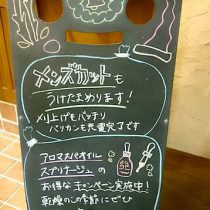 メンズカットも
うけたまわります!
メリ上げもバッチリ
バリカンも充電完了です
アロマスパオイル
スプリナージュの
お得なキャンペーン実施中!
乾燥のこの季節にぜひ